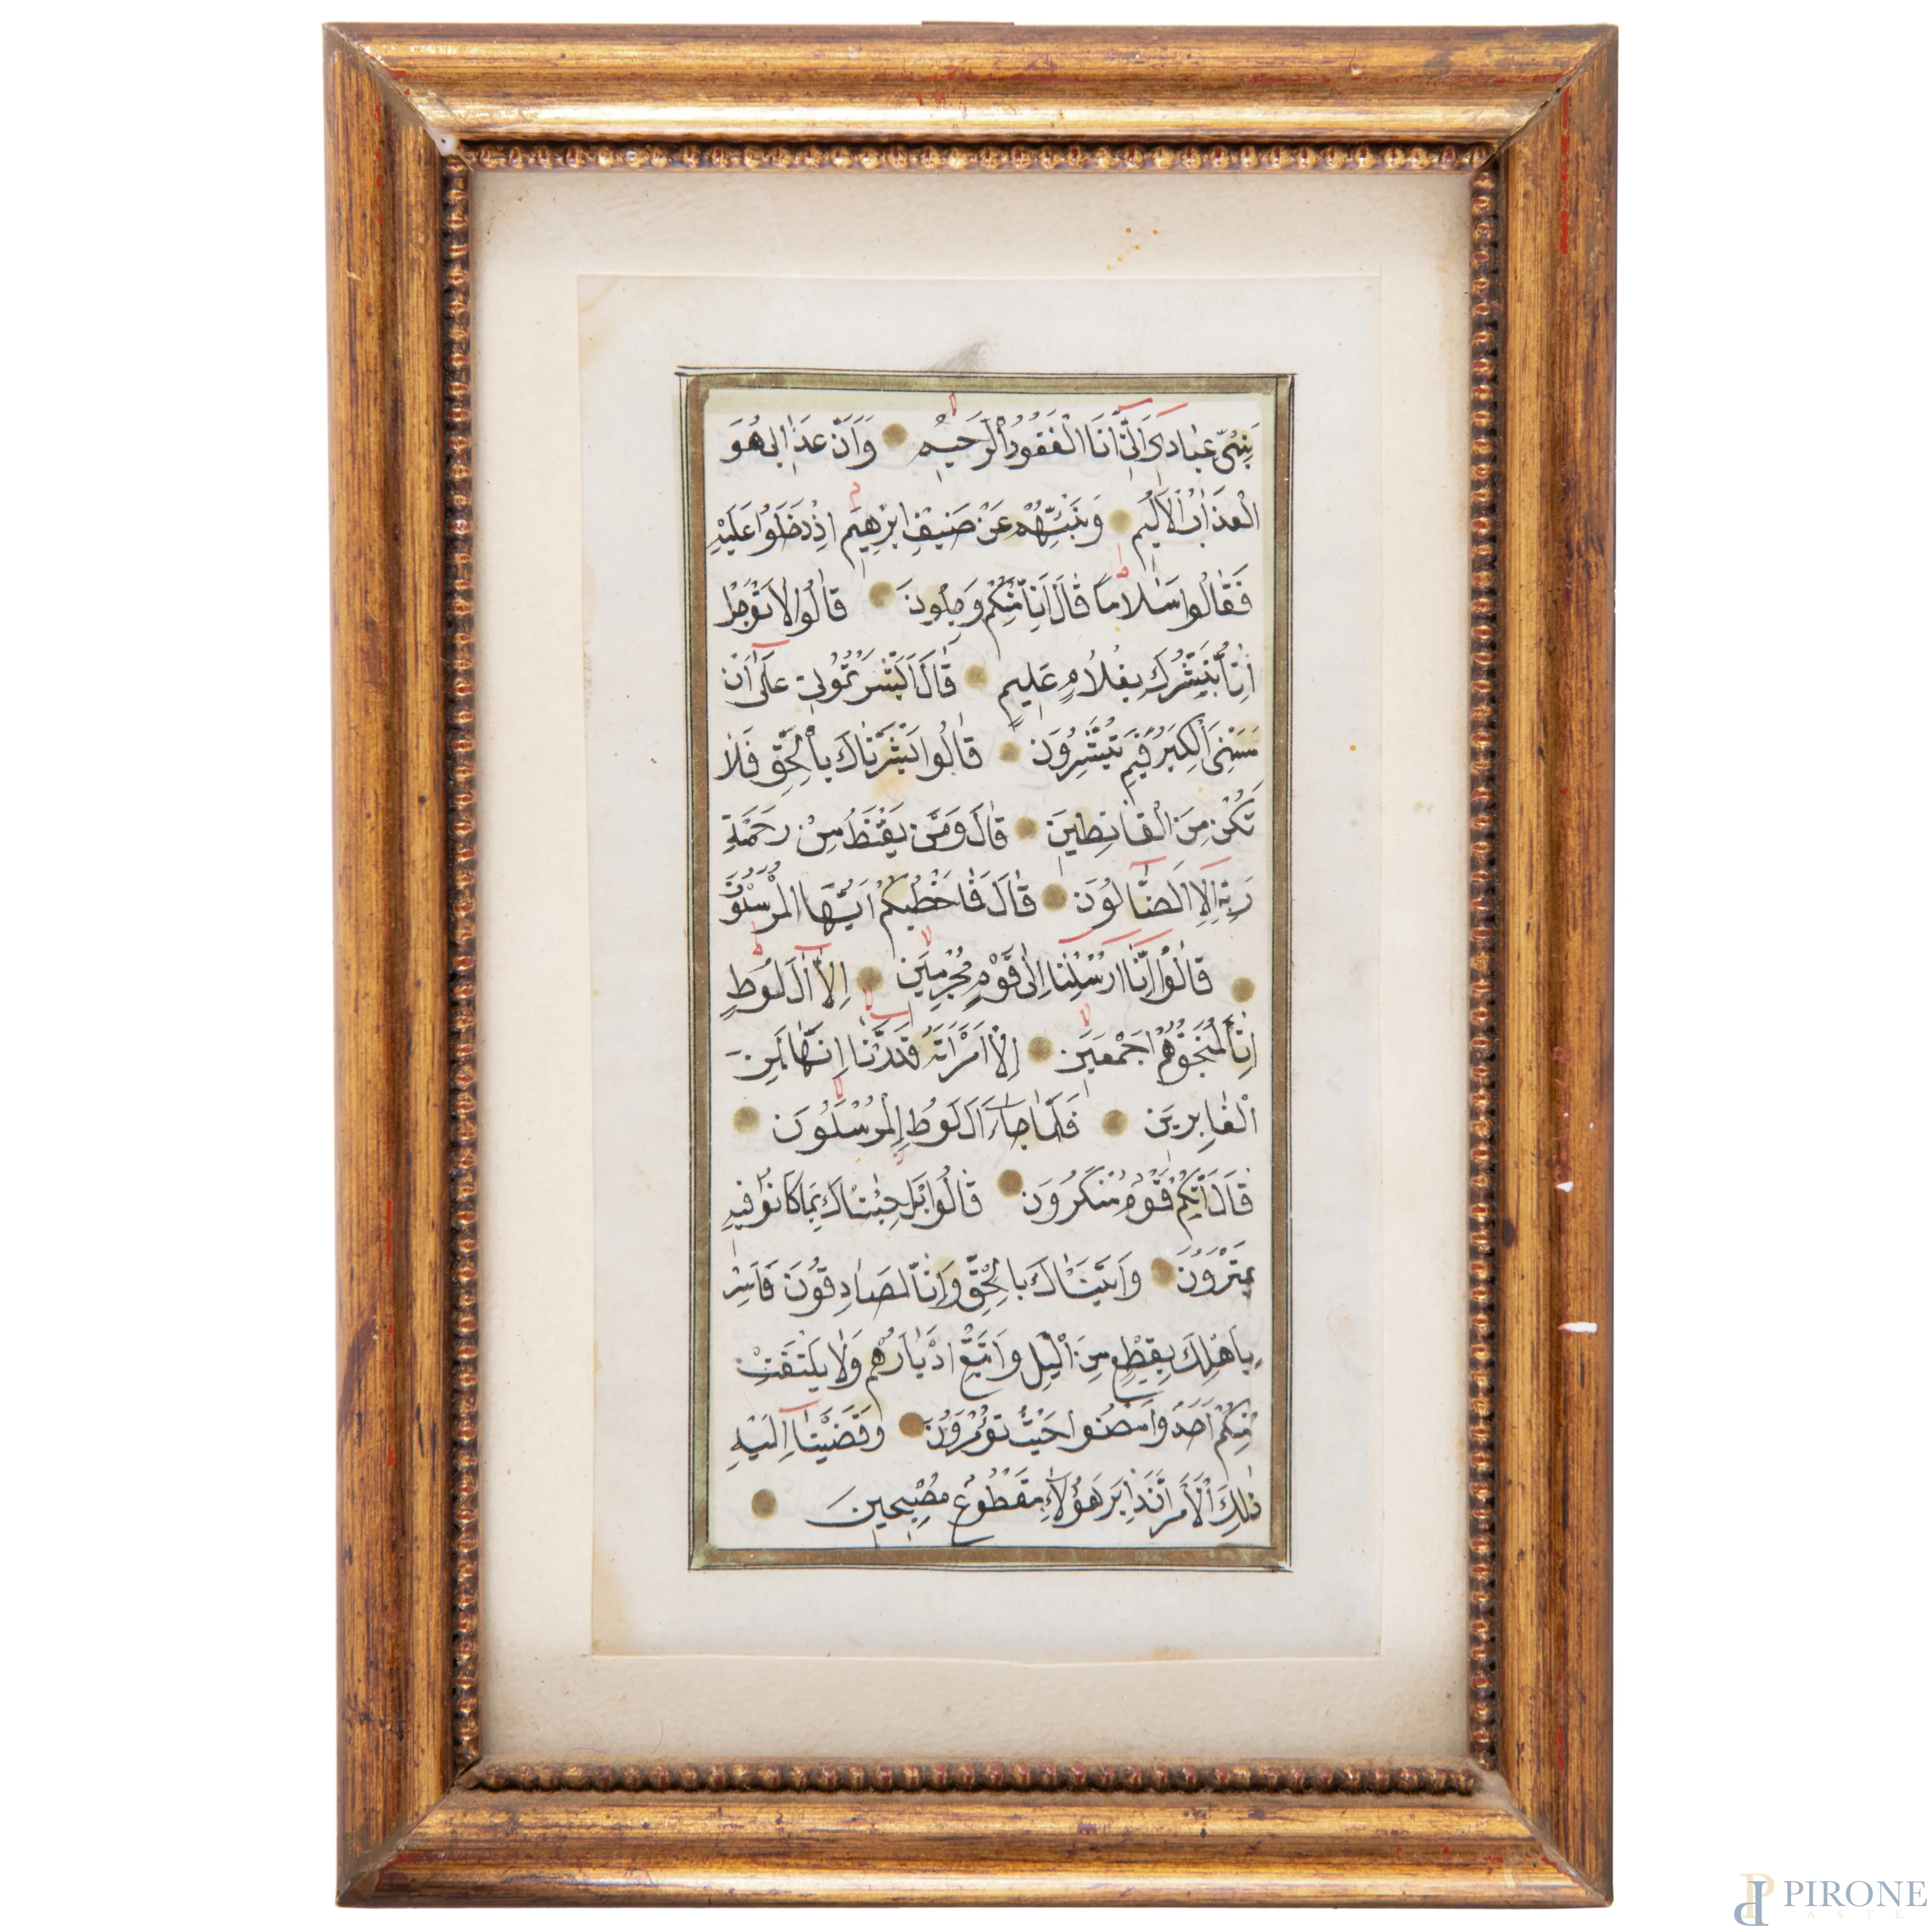 نَبِّئْ عِبَادِى اَنِّى اَنَا الْغَفُورُ الرَّحِيمُ وَاَنَّ عَذَابِى هُوَ
الْعَذَابُ الْاَلِيمُ وَنَبِّئْهُمْ عَنْ ضَيْفِ اِبْرٰهِيمَ اِذْ دَخَلُوا عَلَيْهِ
فَقَالُوا سَلَامًا قَالَ اِنَّا مِنْكُمْ وَجِلُونَ قَالُوا لَا تَوْجَلْ
اِنَّا نُبَشِّرُكَ بِغُلَامٍ عَلِيمٍ قَالَ اَبَشَّرْتُمُونِى عَلٰٓى اَنْ
مَسَّنِىَ الْكِبَرُ فَبِمَ تُبَشِّرُونَ قَالُوا بَشَّرْنَاكَ بِالْحَقِّ فَلَا
تَكُنْ مِنَ الْقَانِطِينَ قَالَ وَمَنْ يَقْنَطُ مِنْ رَحْمَةِ
رَبِّهِ اِلَّا الضَّٓالُّونَ قَالَ فَمَا خَطْبُكُمْ اَيُّهَا الْمُرْسَلُونَ
قَالُوا اِنَّٓا اُرْسِلْنَٓا اِلٰى قَوْمٍ مُجْرِمِينَ اِلَّٓا اٰلَ لُوطٍ
اِنَّا لَمُنَجُّوهُمْ اَجْمَعِينَ اِلَّا امْرَاَتَهُ قَدَّرْنَٓا اِنَّهَا لَمِنَ
الْغَابِرِينَ فَلَمَّا جَٓاءَ اٰلَ لُوطٍ الْمُرْسَلُونَ
قَالَ اِنَّكُمْ قَوْمٌ مُنْكَرُونَ قَالُوا بَلْ جِئْنَاكَ بِمَا كَانُوا فِيهِ
يَمْتَرُونَ وَاَتَيْنَاكَ بِالْحَقِّ وَاِنَّا لَصَادِقُونَ فَاَسْرِ
بِاَهْلِكَ بِقِطْعٍ مِنَ الَّيْلِ وَاتَّبِعْ اَدْبَارَهُمْ وَلَا يَلْتَفِتْ
مِنْكُمْ اَحَدٌ وَامْضُوا حَيْثُ تُؤْمَرُونَ وَقَضَيْنَٓا اِلَيْهِ
ذٰلِكَ الْاَمْرَ اَنَّ دَابِرَ هٰٓؤُلَٓاءِ مَقْطُوعٌ مُصْبِحِينَ
PIRONE
ASTE